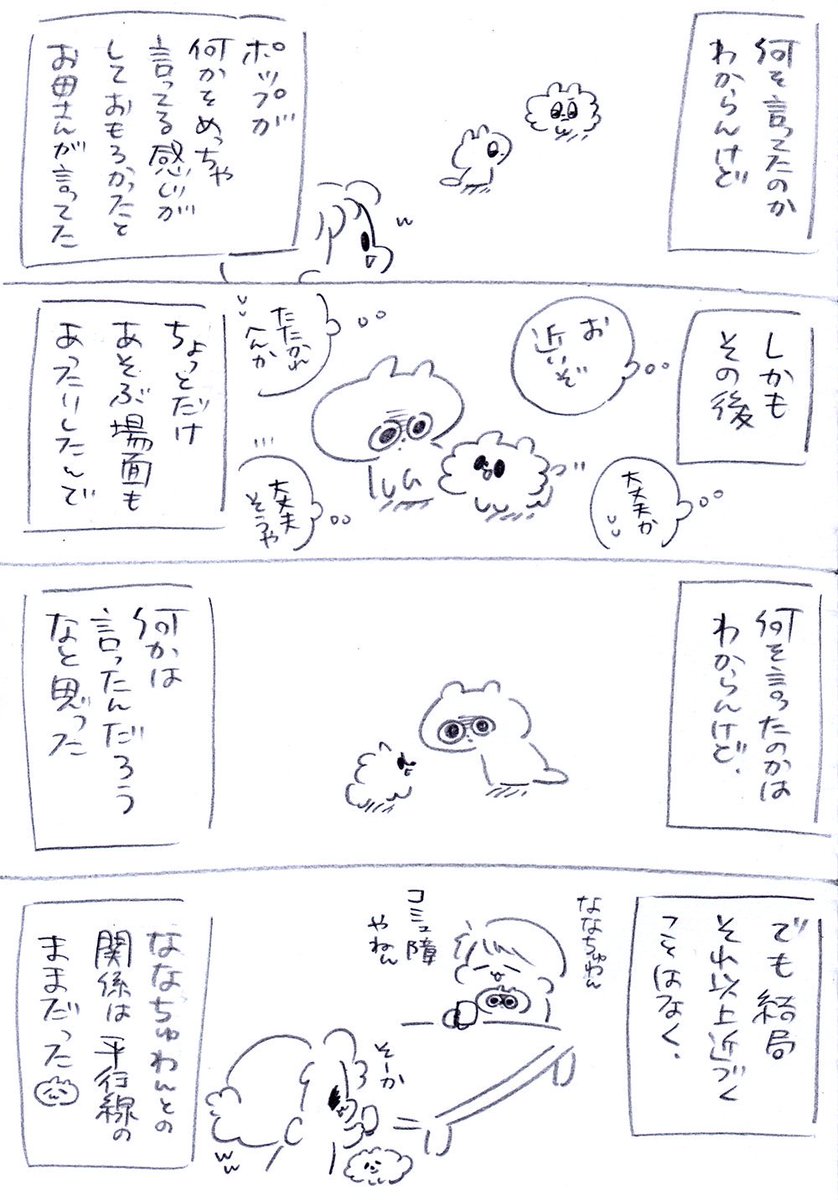 何を言ってたのか
わからんけど
w
ポップが
何かをめっちゃ
言ってる感じが
しておもろかったと
お母さんが言ってた
しかも
その後
お
近いぞ
大丈夫か
たたかれ
へんか
大丈夫
そうや
ちょっとだけ
あそぶ場面も
あったりしたんで
何を言ったのかは
わからんけど、
何かは
言ったんだろう
なと思った
でも結局
それ以上近づく
ことはなく、
ななちゅわん
コミュ障
やねん
そーか
ww
ななちゅわんとの
関係は平行線の
ままだった